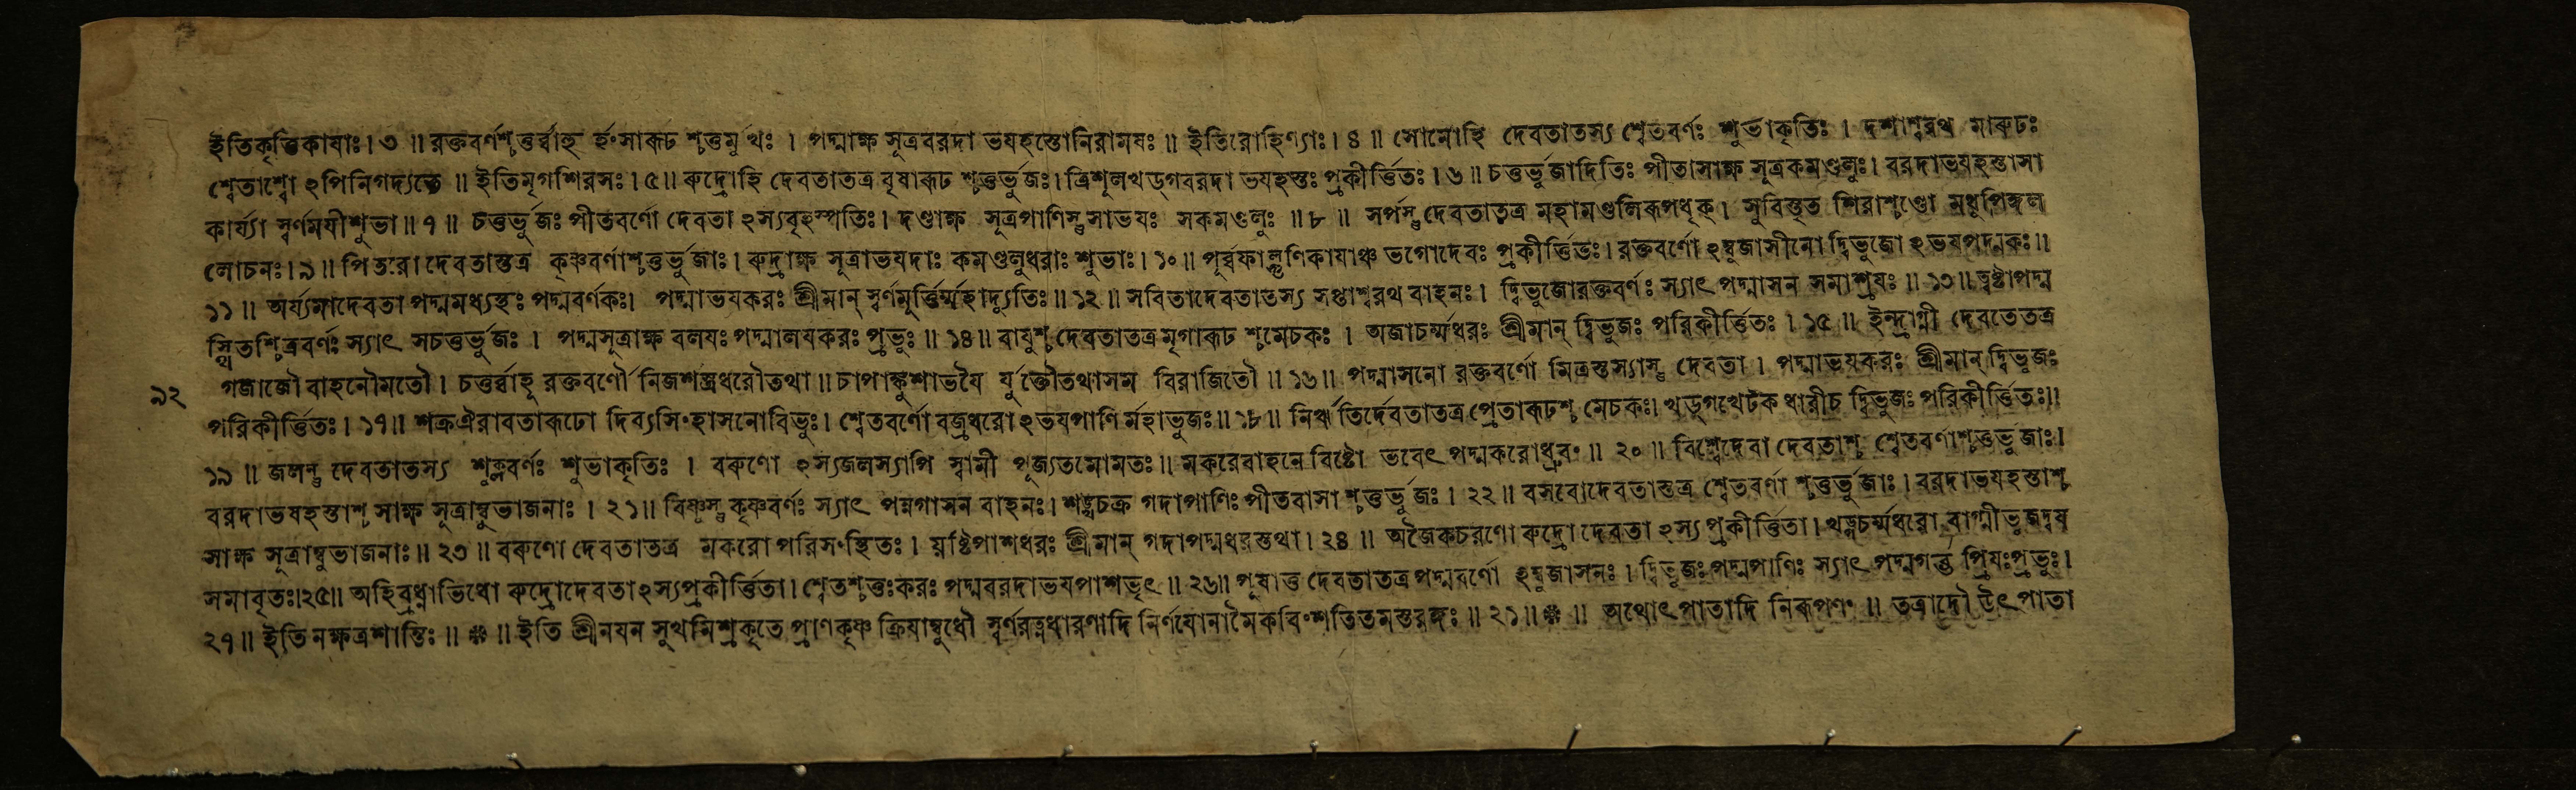 ইতিকৃত্তিকাযাঃ। ৩ ॥ রক্তবর্ণশ্চতুর্ব্বাহু র্হংসারূঢ শ্চতুর্মুখঃ । পদ্মাক্ষ সূত্রবরদা ভযহস্তোনিরামযঃ ॥ ইতিরোহিণ্যাঃ। ৪ ॥ সোমোহি দেবতাতস্য শ্বেতবর্ণঃ শুভাকৃতিঃ । দশাশ্বরথ মারূঢঃ
শ্বেতাশ্বো ঽপিনিগদ্যতে ॥ ইতিমৃগশিরসঃ। ৫॥ রুদ্রোহি দেবতাতত্র বৃষারূঢ শ্চতুর্ভুজঃ। ত্রিশূলখড্গবরদা ভযহস্তঃ প্রকীর্ত্তিতঃ। ৬ ॥ চতুর্ভুজাদিতিঃ পীতাসাক্ষ সূত্রকমণ্ডলুঃ। বরদাভযহস্তাসা
কার্য্যা স্বর্ণমযীশুভা॥ ৭ ॥ চতুর্ভুজঃ পীতবর্ণো দেবতা ঽস্যবৃহস্পতিঃ। দণ্ডাক্ষ সূত্রপাণিস্তুসাভযঃ সকমণ্ডলুঃ ॥৮ ॥ সর্পস্তুদেবতাতত্র মহামণ্ডলিরূপধৃক্। সুবিস্তৃত শিরাশ্চণ্ডো মধুপিঙ্গল
লোচনঃ। ৯॥ পিতরোদেবতাস্তত্র কৃষ্ণবর্ণাশ্চতুর্ভুজাঃ। রুদ্রাক্ষ সূত্রাভযদাঃ কমণ্ডলুধরাঃ শুভাঃ। ১০॥ পূর্ব্বফাল্গুণিকাযাঞ্চ ভগোদেবঃ প্রকীর্ত্তিতঃ। রক্তবর্ণো ঽম্বুজাসীনো দ্বিভুজো ঽভযপদ্মকঃ॥
১১ ॥ অর্য্যমাদেবতা পদ্মমধ্যস্তঃ পদ্মবর্ণকঃ। পদ্মাভযকরঃ শ্রীমান্ স্বর্ণমূর্ত্তির্ম্মহাদ্যুতিঃ॥ ১২॥ সবিতাদেবতাতস্য সপ্তাশ্বরথ বাহনঃ। দ্বিভুজোরক্তবর্ণঃ স্যাৎ পদ্মাসন সমাশ্রযঃ॥ ১৩॥ ত্বষ্টাপদ্ম
স্থিতশ্চিত্রবর্ণঃ স্যাৎ সচতুর্ভুজঃ । পদ্মসূত্রাক্ষ বলযঃ পদ্মালযকরঃ প্রভুঃ॥ ১৪॥ বাযুশ্চ দেবতাতত্রমৃগারূঢ শ্চমেচকঃ । অজাচর্ম্মধরঃ শ্রীমান্ দ্বিভুজঃ পরিকীর্ত্তিতঃ । ১৫॥ ইন্দ্রাগ্নী দেবতেতত্র
৯২ গজাজৌ বাহনৌমতৌ। চতুর্ব্বাহূ রক্তবর্ণৌ নিজশস্ত্রধরৌতথা॥ চাপাঙ্কুশাভযৈ র্যুক্তৌতথাসম বিরাজিতৌ॥ ১৬॥ পদ্মাসনো রক্তবর্ণো মিত্রস্তস্যাস্তু দেবতা। পদ্মাভযকরঃ শ্রীমান্ দ্বিভুজঃ
পরিকীর্ত্তিতঃ। ১৭॥ শক্রঐরাবতারূঢো দিব্যসিংহাসনোবিভুঃ। শ্বেতবর্ণো বজ্রধরো ঽভযপাণি র্মহাভুজঃ॥ ১৮॥ নির্ঋতির্দেবতাতত্র প্রেতারূঢশ্চ মেচকঃ। খড্গখেটক ধারীচ দ্বিভুজঃ পরিকীর্ত্তিতঃ॥
১৯ ॥ জলন্তু দেবতাতস্য শুক্লবর্ণঃ শুভাকৃতিঃ । বরুণো ঽস্যজলস্যাপি স্বামী পূজ্যতমোমতঃ॥ মকরেবাহনে বিষ্টো ভবেৎ পদ্মকরোধ্রুবং ॥ ২০ ॥ বিশ্বেদেবা দেবতাশ্চ শ্বেতবর্ণাশ্চতুর্ভুজাঃ।
বরদাভযহস্তাশ্চ সাক্ষ সূত্রাম্বুভাজনাঃ । ২১॥ বিষ্ণুস্তু কৃষ্ণবর্ণঃ স্যাৎ পন্নগাসন বাহনঃ। শঙ্খচক্র গদাপাণিঃ পীতবাসা শ্চতুর্ভুজঃ । ২২॥ বসবোদেবতাস্তত্র শ্বেতবর্ণা শ্চতুর্ভুজাঃ। বরদাভযহস্তাশ্চ
সাক্ষ সূত্রাম্বুভাজনাঃ॥ ২৩ ॥ বরুণো দেবতাতত্র মকরো পরিসংস্থিতঃ । যষ্টিপাশধরঃ শ্রীমান্ গদাপদ্মধরস্তথা। ২৪ ॥ অজৈকচরণো রুদ্রো দেবতা ঽস্য প্রকীর্ত্তিতা। খড্গচর্ম্মধরো বাগ্মীভুজদ্বয
সমাবৃতঃ।২৫॥ অহিব্রধ্নাভিধো রুদ্রোদেবতাঽস্যপ্রকীর্ত্তিতা। শ্বেতশ্চতুঃকরঃ পদ্মবরদাভযপাশভৃৎ॥ ২৬॥ পূষাতু দেবতাতত্র পদ্মবর্ণো ঽম্বুজাসনঃ। দ্বিভুজঃ পদ্মপাণিঃ স্যাৎ পদ্মগর্ভ প্রিযঃপ্রভুঃ।
২৭॥ ইতি নক্ষত্রশান্তিঃ ॥ ❈ ॥ ইতি শ্রীনযন সুখমিশ্রকৃতে প্রাণকৃষ্ণ ক্রিযাম্বুধৌ স্বর্ণরত্নধারণাদি নির্ণযোনামৈকবিংশতিতমস্তরঙ্গঃ ॥ ২১॥ ❈ ॥ অথোৎপাতাদি নিরূপণং ॥ তত্রাদৌ উৎপাতা